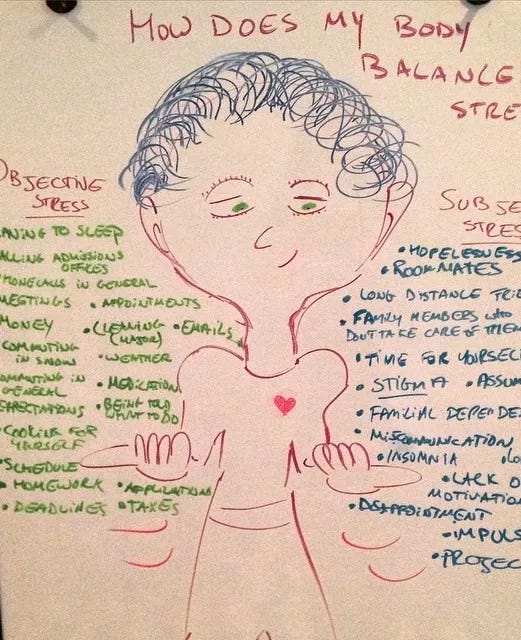 HOW DOES MY BODY
BALANCE
STRE
OBJECTIVE
STRESS
AVING TO SLEEP
ALLING ADMISSIONS
OFFICES
HONECALLS IN GENERAL
MEETINGS • APPOINTMENTS
MONEY • CLEANING (MAJOR) • EMAILS
COMMUTING
IN SNOW • WEATHER
OMMUTING IN
GENERAL • MEDICATION
EXPECTATIONS • BEING TOLD
WHAT TO DO
COOKING FOR
YOURSELF
• SCHEDULE
• HOMEWORK • APPLICATIONS
• DEADLINES • TAXES
SUBJE
STRESS
• HOPELESSNESS
• ROOMMATES
• LONG DISTANCE FRIE
• FAMILY MEMBERS WHO
DON'T TAKE CARE OF THEM
• TIME FOR YOURSELF
• STIGMA • ASSUM
• FAMILIAL DEPENDE
• MISCOMMUNICATION
• INSOMNIA • LO
• LACK O
MOTIVATION
• DISAPPOINTMENT
• IMPULS
• PROJEC